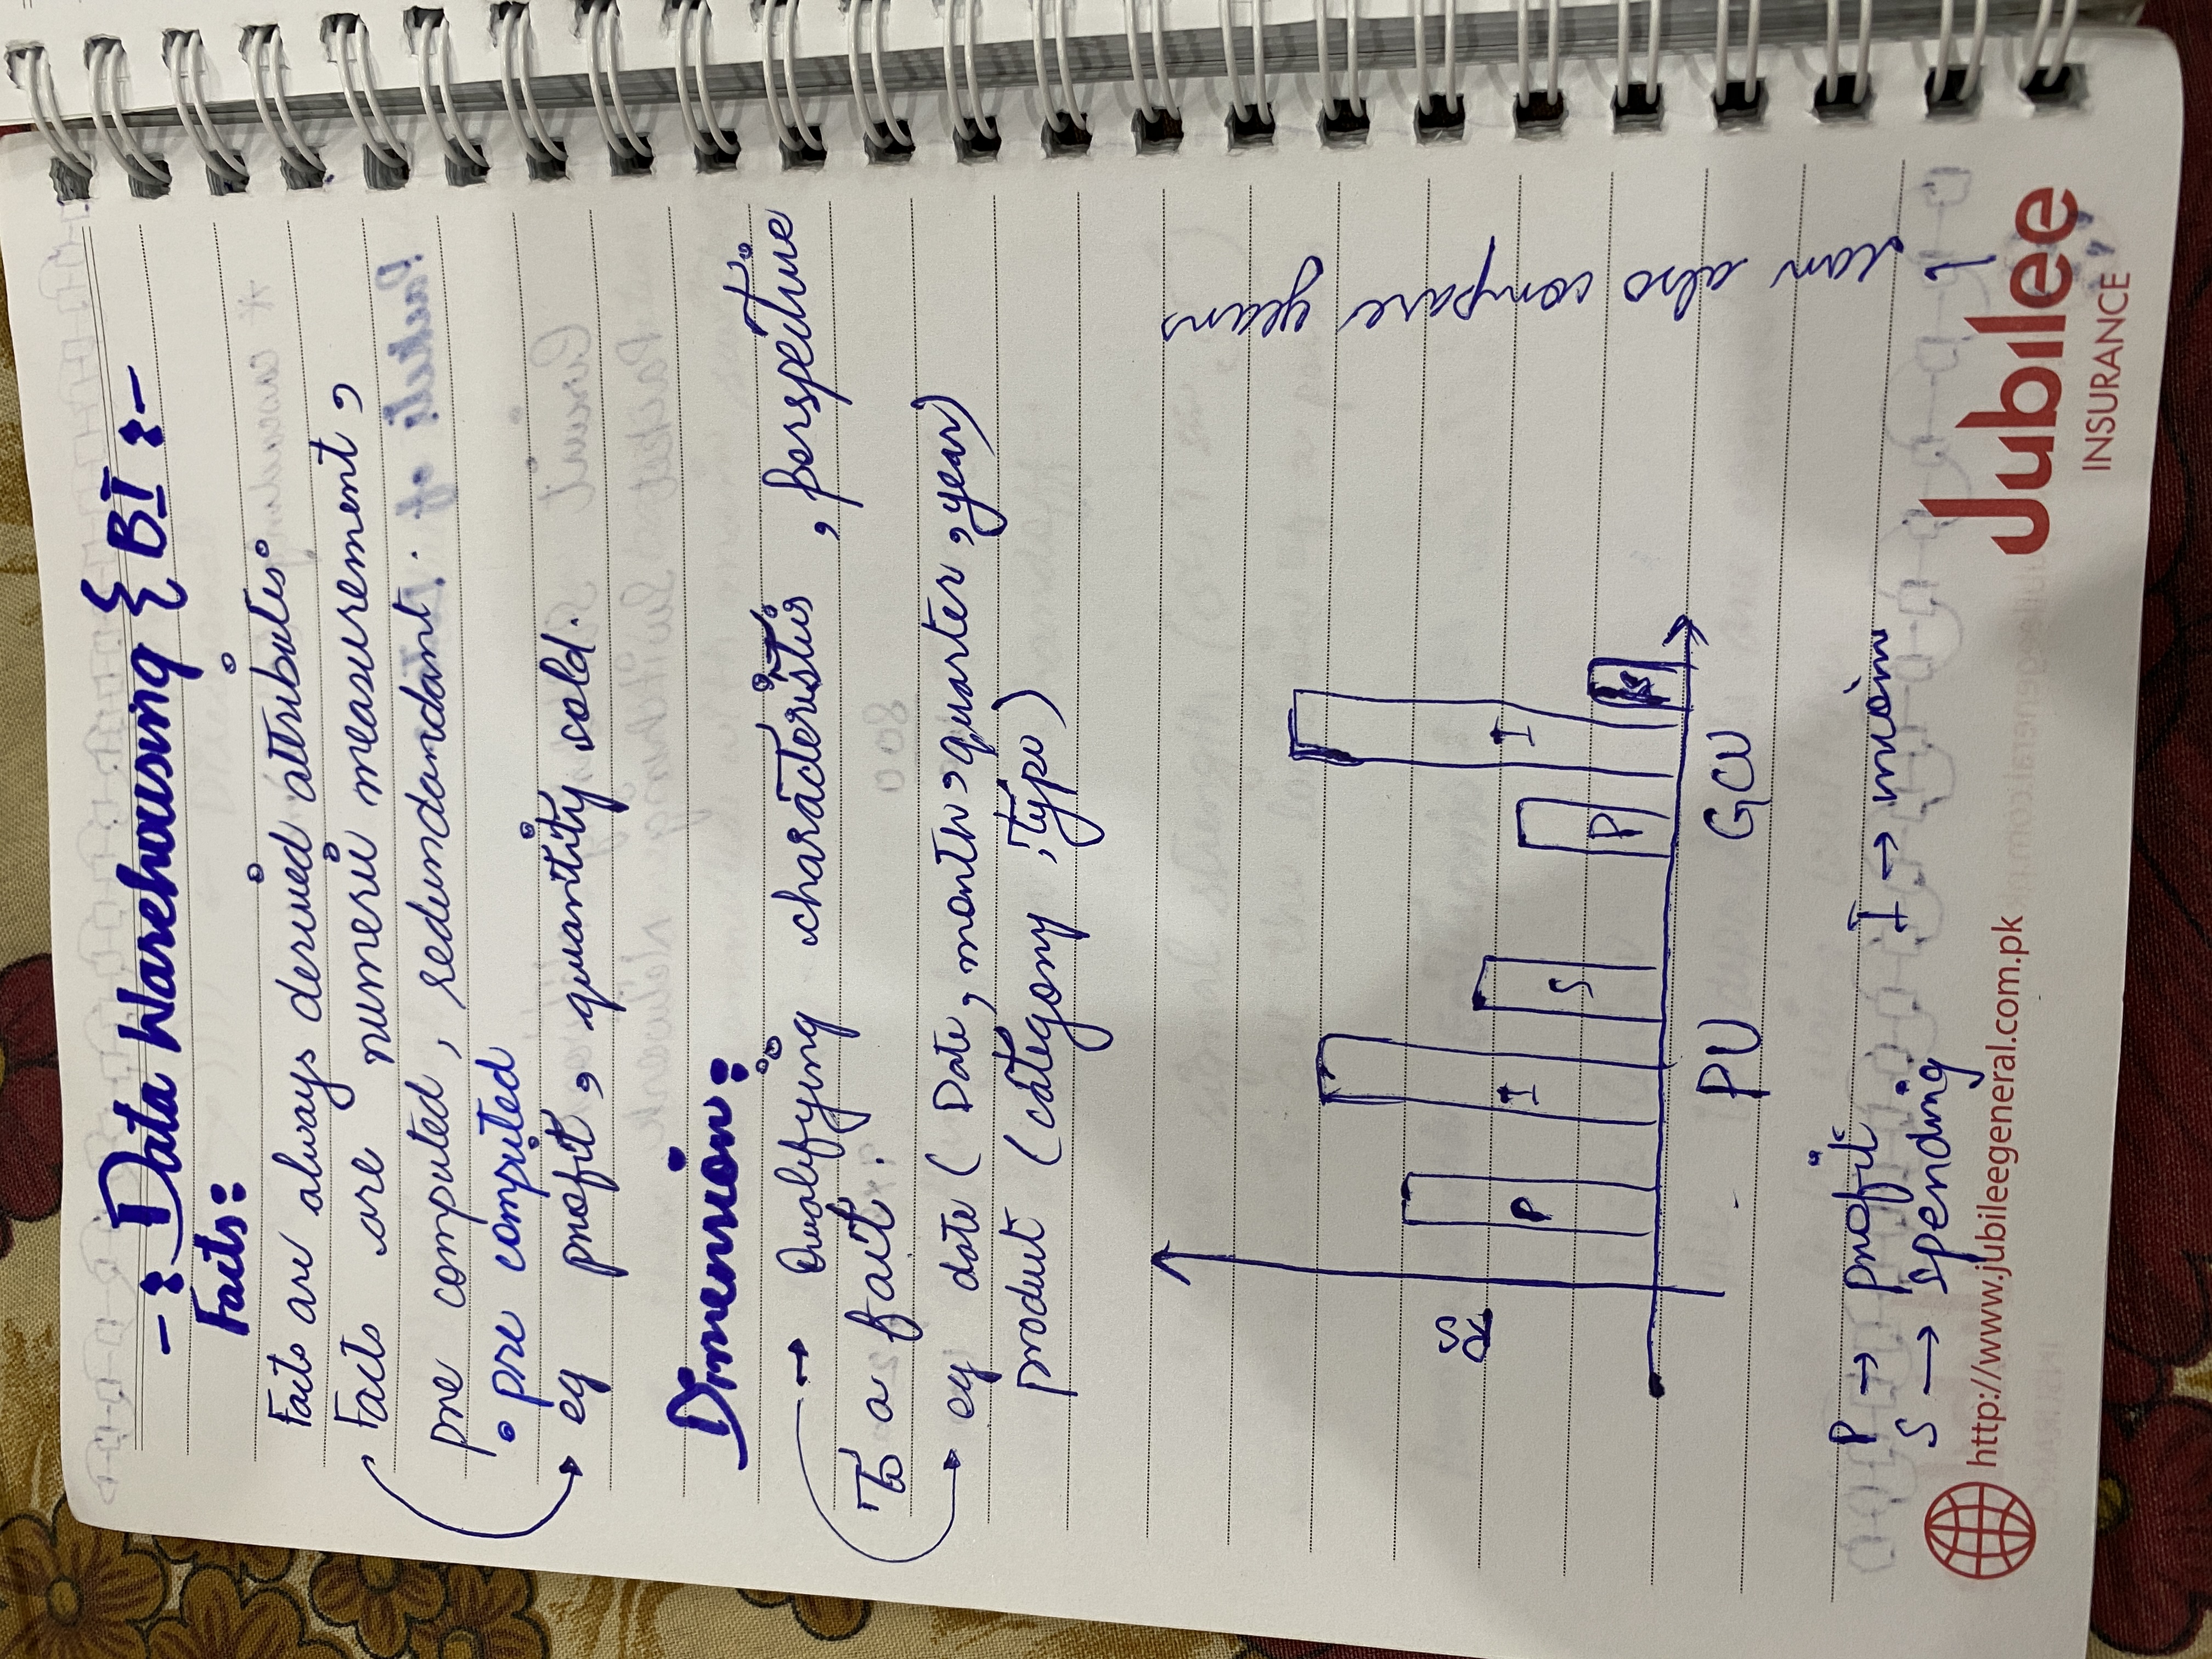 -: Data Warehousing { BI :-
Facts:
Facts are always derived attributes.
Facts are numeric measurement,
pre computed, redundandant.
• pre computed
eg profit, quantity sold.
Dimension:
→ Qualifying characteristics, perspective
To a fact.
→ eg date ( Date, month, quarter, year)
product (category, type)
RS
P I S P I
PU GCU
P → profit
I → incom
S → spending
→ can also compare years
http://www.jubileegeneral.com.pk
Jubilee
INSURANCE